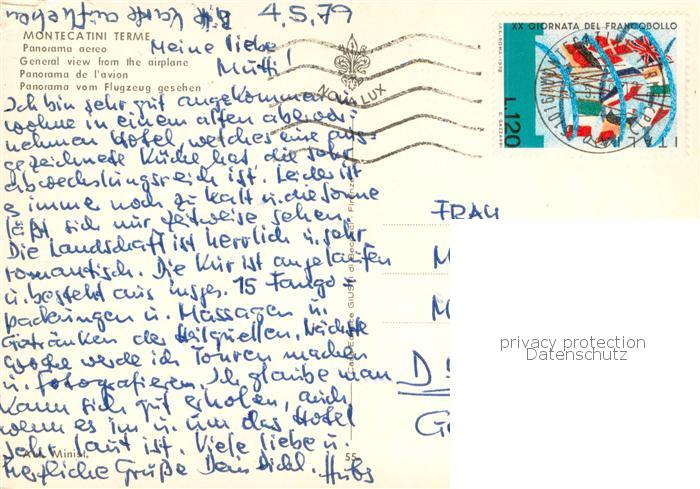 Bitte Karte aufheben
4.5.79
MONTECATINI TERME
Panorama aereo
General view from the airplane
Panorama de l'avion
Panorama vom Flugzeug gesehen
Meine liebe
Mutti!
Ich bin sehr gut angekommen u.
wohne in einem alten
nehmen Hotel, welches eine ausge-
zeichnete Küche hat, die sehr
abwechslungsreich ist. Leider ist
es immer noch zu kalt u. die Sonne
läßt sich nur zeitweise sehen.
Die Landschaft ist herrlich u. sehr
romantisch. Die Kur ist angelaufen
u. besteht aus insges. 15 Fango-
packungen u. Massagen u.
Getränken der Heilquellen. Nächste
Woche werde ich Touren machen
u. fotografieren. Ich glaube man
kann sich gut erholen, auch
wenn es im u. um das Hotel
sehr laut ist. Viele liebe u.
herzliche Grüße Dein
Minist.
55
NOVA LUX
XX GIORNATA DEL FRANCOBOLLO
I.P.S. ROMA 1978
L.120
ITALIA
FRAU
M
M
D
G
privacy protection
Datenschutz